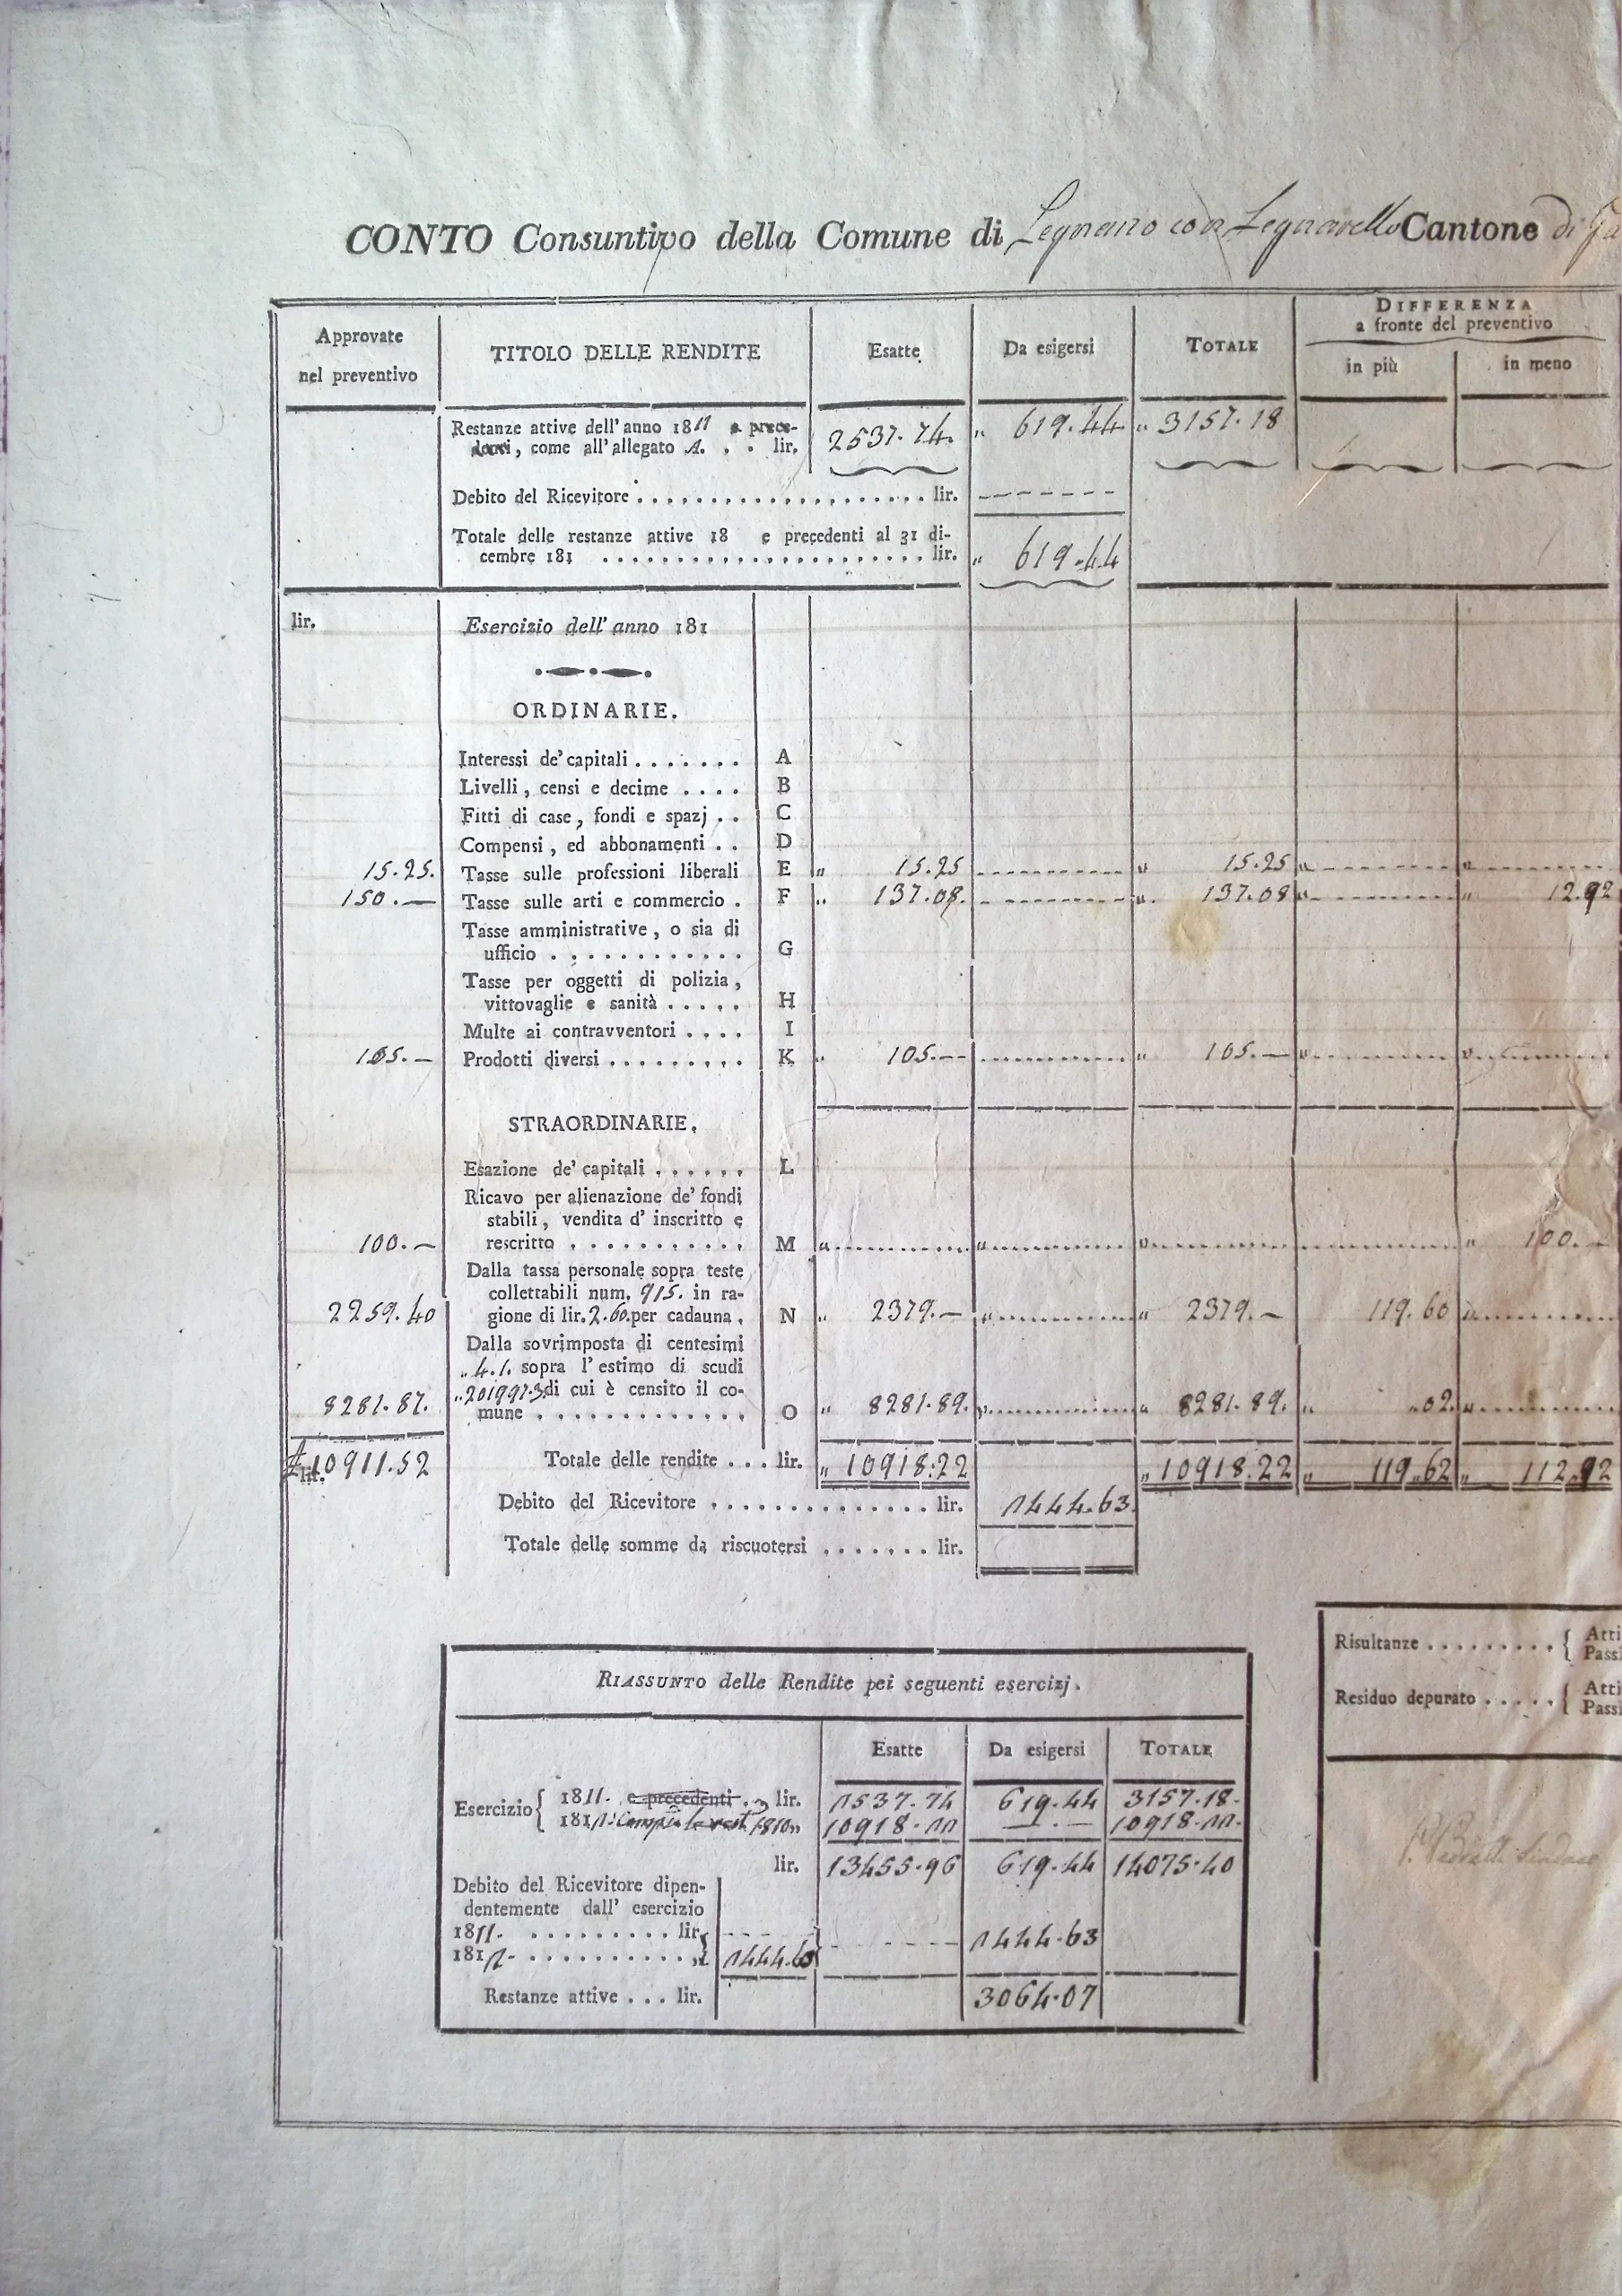 CONTO Consuntivo della Comune di Legnano con Legnarello Cantone di
Approvate nel preventivo
TITOLO DELLE RENDITE
Esatte
Da esigersi
TOTALE
DIFFERENZA
a fronte del preventivo
in più
in meno
Restanze attive dell' anno 1811 e prece-
denti, come all' allegato A. . . lir. 2537.74. „ 619.44 „ 3157.18
Debito del Ricevitore . . . . . . . . . . . . . . . . . . . lir. - - - - - - -
Totale delle restanze attive 18 e precedenti al 31 di-
cembre 181 . . . . . . . . . . . . . . . . . . . . . . lir. „ 619.44
lir. Esercizio dell' anno 181
ORDINARIE.
Interessi de' capitali . . . . . . . A
Livelli, censi e decime . . . . B
Fitti di case, fondi e spazj . . C
Compensi, ed abbonamenti . . D
15.25. Tasse sulle professioni liberali E „ 15.25 „ 15.25 „ „
150.— Tasse sulle arti e commercio . F „ 137.08. „ 137.08 „ „ 12.92
Tasse amministrative, o sia di
ufficio . . . . . . . . . . . . G
Tasse per oggetti di polizia,
vittovaglie e sanità . . . . . H
Multe ai contravventori . . . . I
105.— Prodotti diversi . . . . . . . . . K „ 105.— „ 105.— „ „
STRAORDINARIE.
Esazione de' capitali . . . . . . L
Ricavo per alienazione de' fondi
stabili, vendita d' inscritto e
100.— rescritto . . . . . . . . . . . M „ „ „ „ 100.—
Dalla tassa personale sopra teste
collettabili num. 915. in ra-
2259.40 gione di lir. 2.60. per cadauna . N „ 2379.— „ „ 2379.— 119.60 „
Dalla sovrimposta di centesimi
„ 4.1. sopra l' estimo di scudi
„ 201997.3 di cui è censito il co-
8281.87. mune . . . . . . . . . . . . . O „ 8281.89. „ „ 8281.89. „ „02. „
lir. 10911.52 Totale delle rendite . . . lir. „ 10918.22 „ 10918.22 „ 119.62 „ 112.92
Debito del Ricevitore . . . . . . . . . . . . . . lir. 1444.63.
Totale delle somme da riscuotersi . . . . . . . lir.
Risultanze . . . . . . . . . { Atti
Passi
Residuo depurato . . . . . { Atti
Passi
RIASSUNTO delle Rendite pei seguenti esercizj.
Esatte
Da esigersi
TOTALE
Esercizio { 1811. e precedenti . „ lir. 2537.74 619.44 3157.18.
1812 10918.22 —.— 10918.22.
lir. 13455.96 619.44 14075.40
Debito del Ricevitore dipen-
dentemente dall' esercizio
1811. . . . . . . . . . lir.
1812. . . . . . . . . . . „ 1444.63 1444.63
Restanze attive . . . lir. 3064.07
Sindaco